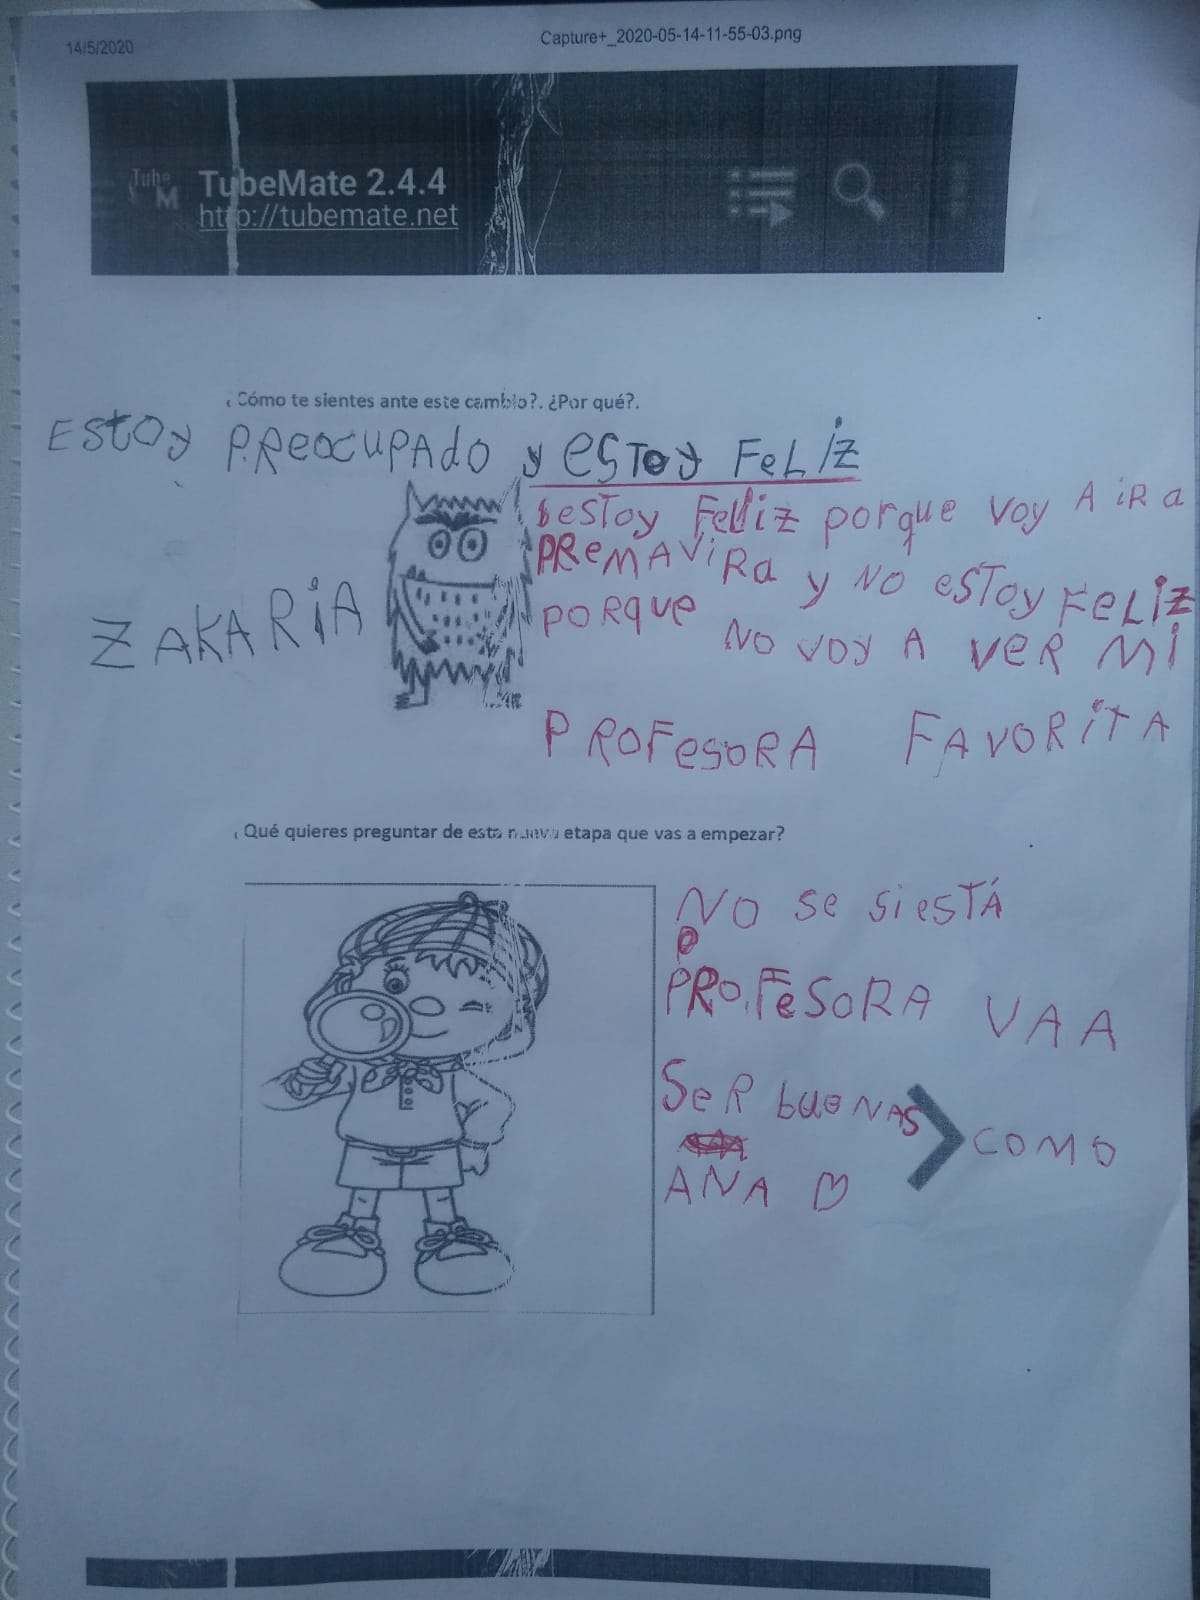 14/5/2020
Capture+_2020-05-14-11-55-03.png
Tube M
TubeMate 2.4.4
http://tubemate.net
¿Cómo te sientes ante este cambio?. ¿Por qué?.
EStOy PREOCUPAdO y eSToy FeLiZ
eSToy FeLiz porque Voy A iR a
PReMAViRa y NO eSToy FeLiZ
PORque NO VOy A VeR Mi
ZAKARiA
PROFeSORA FAVORiTA
¿Qué quieres preguntar de esta nueva etapa que vas a empezar?
NO Se Si eSTÁ
P
PROFeSORA VA A
SeR bueNAS COMO
ANA